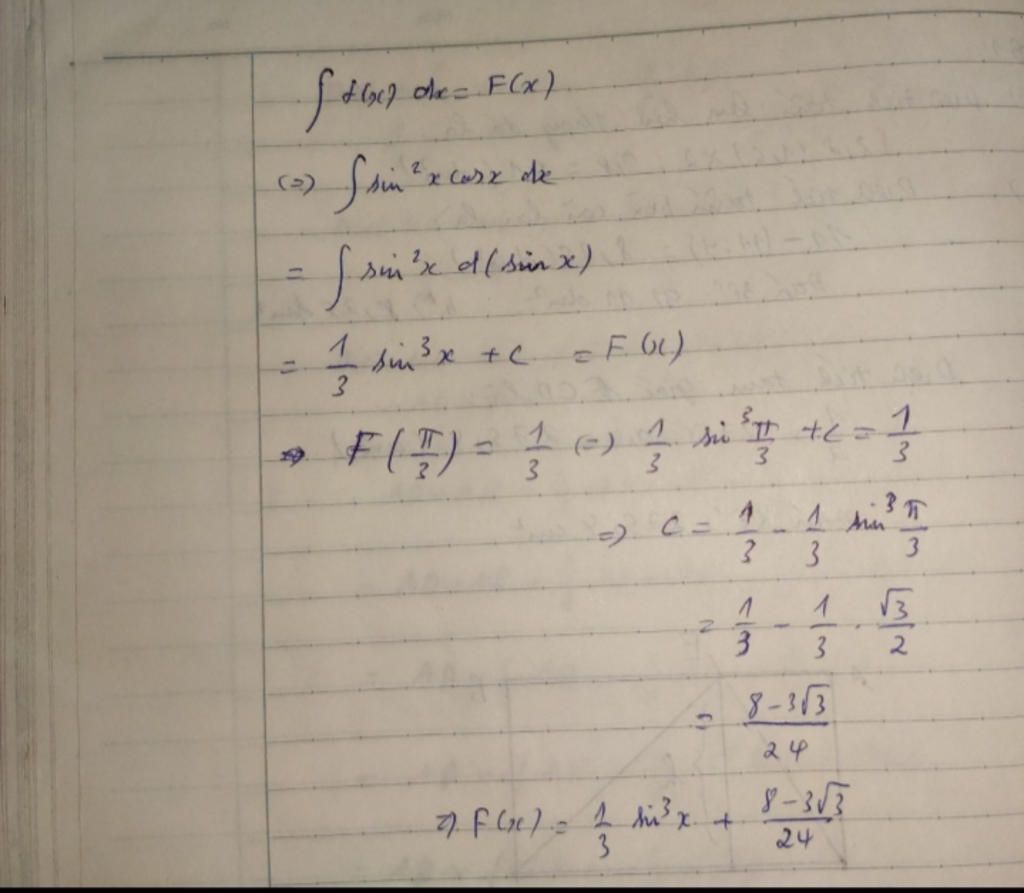 ∫ f(x) dx = F(x)
(=) ∫ sin²x cosx dx
= ∫ sin²x d(sin x)
= 1/3 sin³x + C = F(x)
=> F(π/3) = 1/3 (=) 1/3 sin³ π/3 + C = 1/3
=> C = 1/3 - 1/3 sin³ π/3
= 1/3 - 1/3 . √3/2
= (8 - 3√3)/24
=> F(x) = 1/3 sin³x + (8 - 3√3)/24